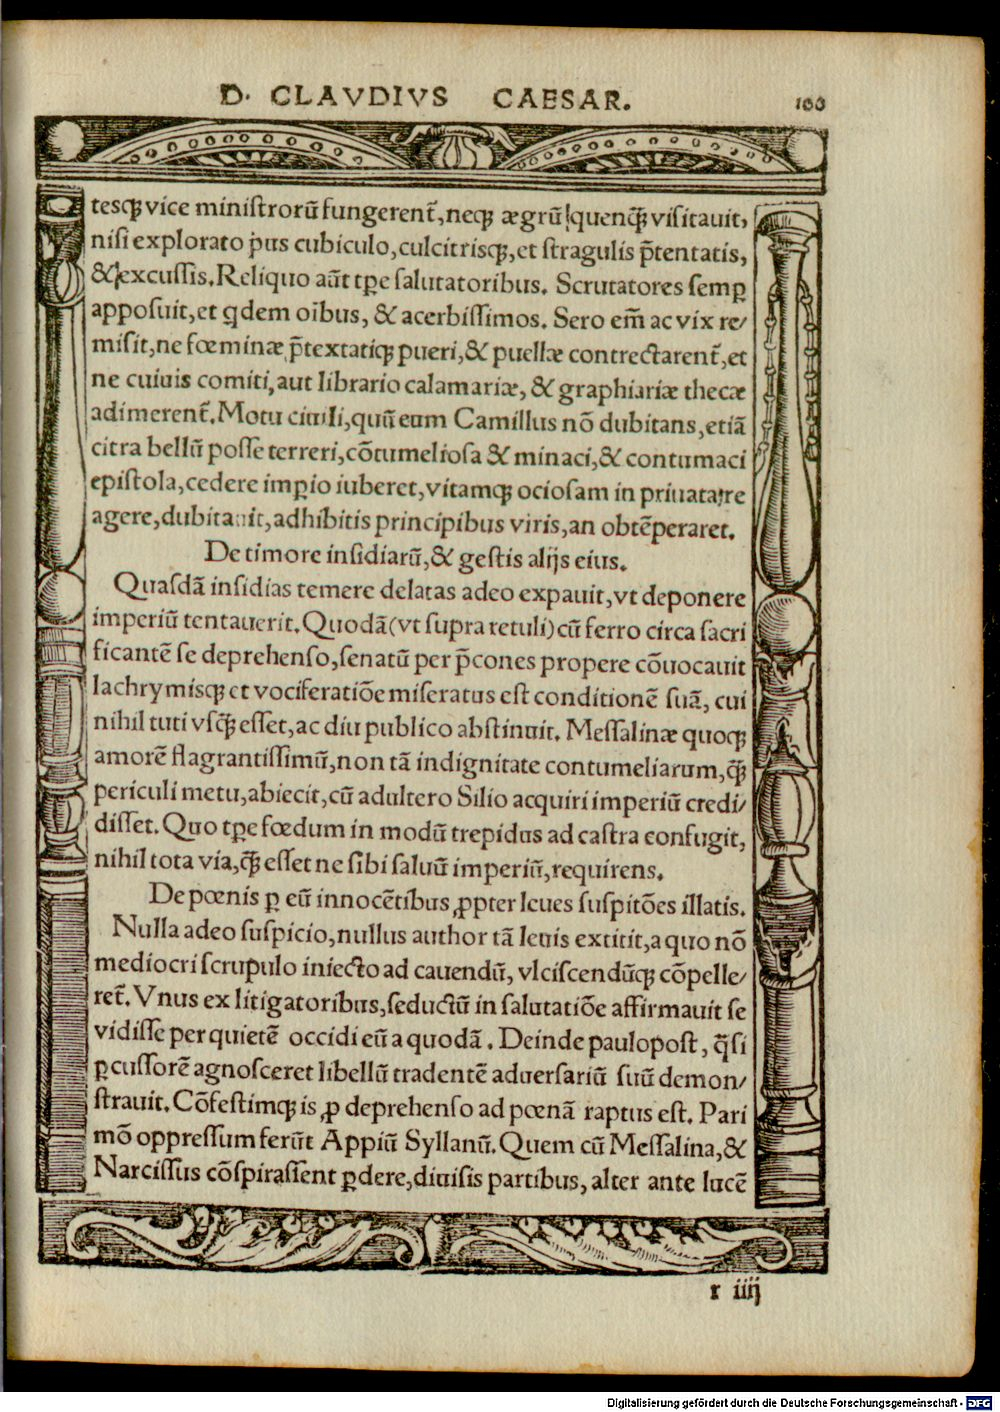 D. CLAVDIVS CAESAR. 100
tesqꝫ vice ministrorū fungerent̄, neqꝫ ægrū quenqꝫ̄ visitauit,
nisi explorato p̍us cubiculo, culcitrisqꝫ, et stragulis p̄tentatis,
& excussis. Reliquo aūt tꝑe salutatoribus. Scrutatores semꝑ
apposuit, et qdem oībus, & acerbissimos. Sero em̄ ac vix re/
misit, ne fœminæ, p̄textatiqꝫ pueri, & puellæ contrectarent̄, et
ne cuiuis comiti, aut librario calamariæ, & graphiariæ thecæ
adimerent̄. Motu ciuili, quū eum Camillus nō dubitans, etiā
citra bellū posse terreri, cōtumeliosa & minaci, & contumaci
epistola, cedere imꝑio iuberet, vitamqꝫ ociosam in priuata re
agere, dubitauit, adhibitis principibus viris, an obtēperaret.
De timore insidiarū, & gestis alijs eius.
Quasdā insidias temere delatas adeo expauit, vt deponere
imperiū tentauerit. Quodā (vt supra retuli) cū ferro circa sacri
ficantē se deprehenso, senatū per p̄cones propere cōuocauit
lachrymisqꝫ et vociferatiōe miseratus est conditionē suā, cui
nihil tuti vsqꝫ̄ esset, ac diu publico abstinuit. Messalinæ quoqꝫ
amorē flagrantissimū, non tā indignitate contumeliarum, qꝫ̄
periculi metu, abiecit, cū adultero Silio acquiri imperiū credi/
disset. Quo tꝑe fœdum in modū trepidus ad castra confugit,
nihil tota via, qꝫ̄ esset ne sibi saluū imperiū, requirens.
De pœnis ꝑ eū innocētibus ꝓpter leues suspitōes illatis.
Nulla adeo suspicio, nullus author tā leuis extitit, a quo nō
mediocri scrupulo iniecto ad cauendū, vlciscendūqꝫ cōpelle/
ret̄. Vnus ex litigatoribus, seductū in salutatiōe affirmauit se
vidisse per quietē occidi eū a quodā. Deinde paulopost, q̄si
ꝑcussorē agnosceret libellū tradentē aduersariū suū demon/
strauit. Cōfestimqꝫ is ꝓ deprehenso ad pœnā raptus est. Pari
mō oppressum ferūt Appiū Syllanū. Quem cū Messalina, &
Narcissus cōspirassent ꝑdere, diuisis partibus, alter ante lucē
r iiij
Digitalisierung gefördert durch die Deutsche Forschungsgemeinschaft - DFG